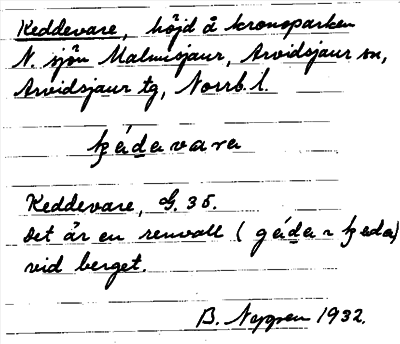 Keddevare, höjd å kronoparken
N. sjön Malmisjaur, Arvidsjaur sn,
Arvidsjaur tg, Norrb. l.
ķēdevare
Keddevare, G. 35.
Det är en renvall (
vid berget.
B. Nyyssen 1932.